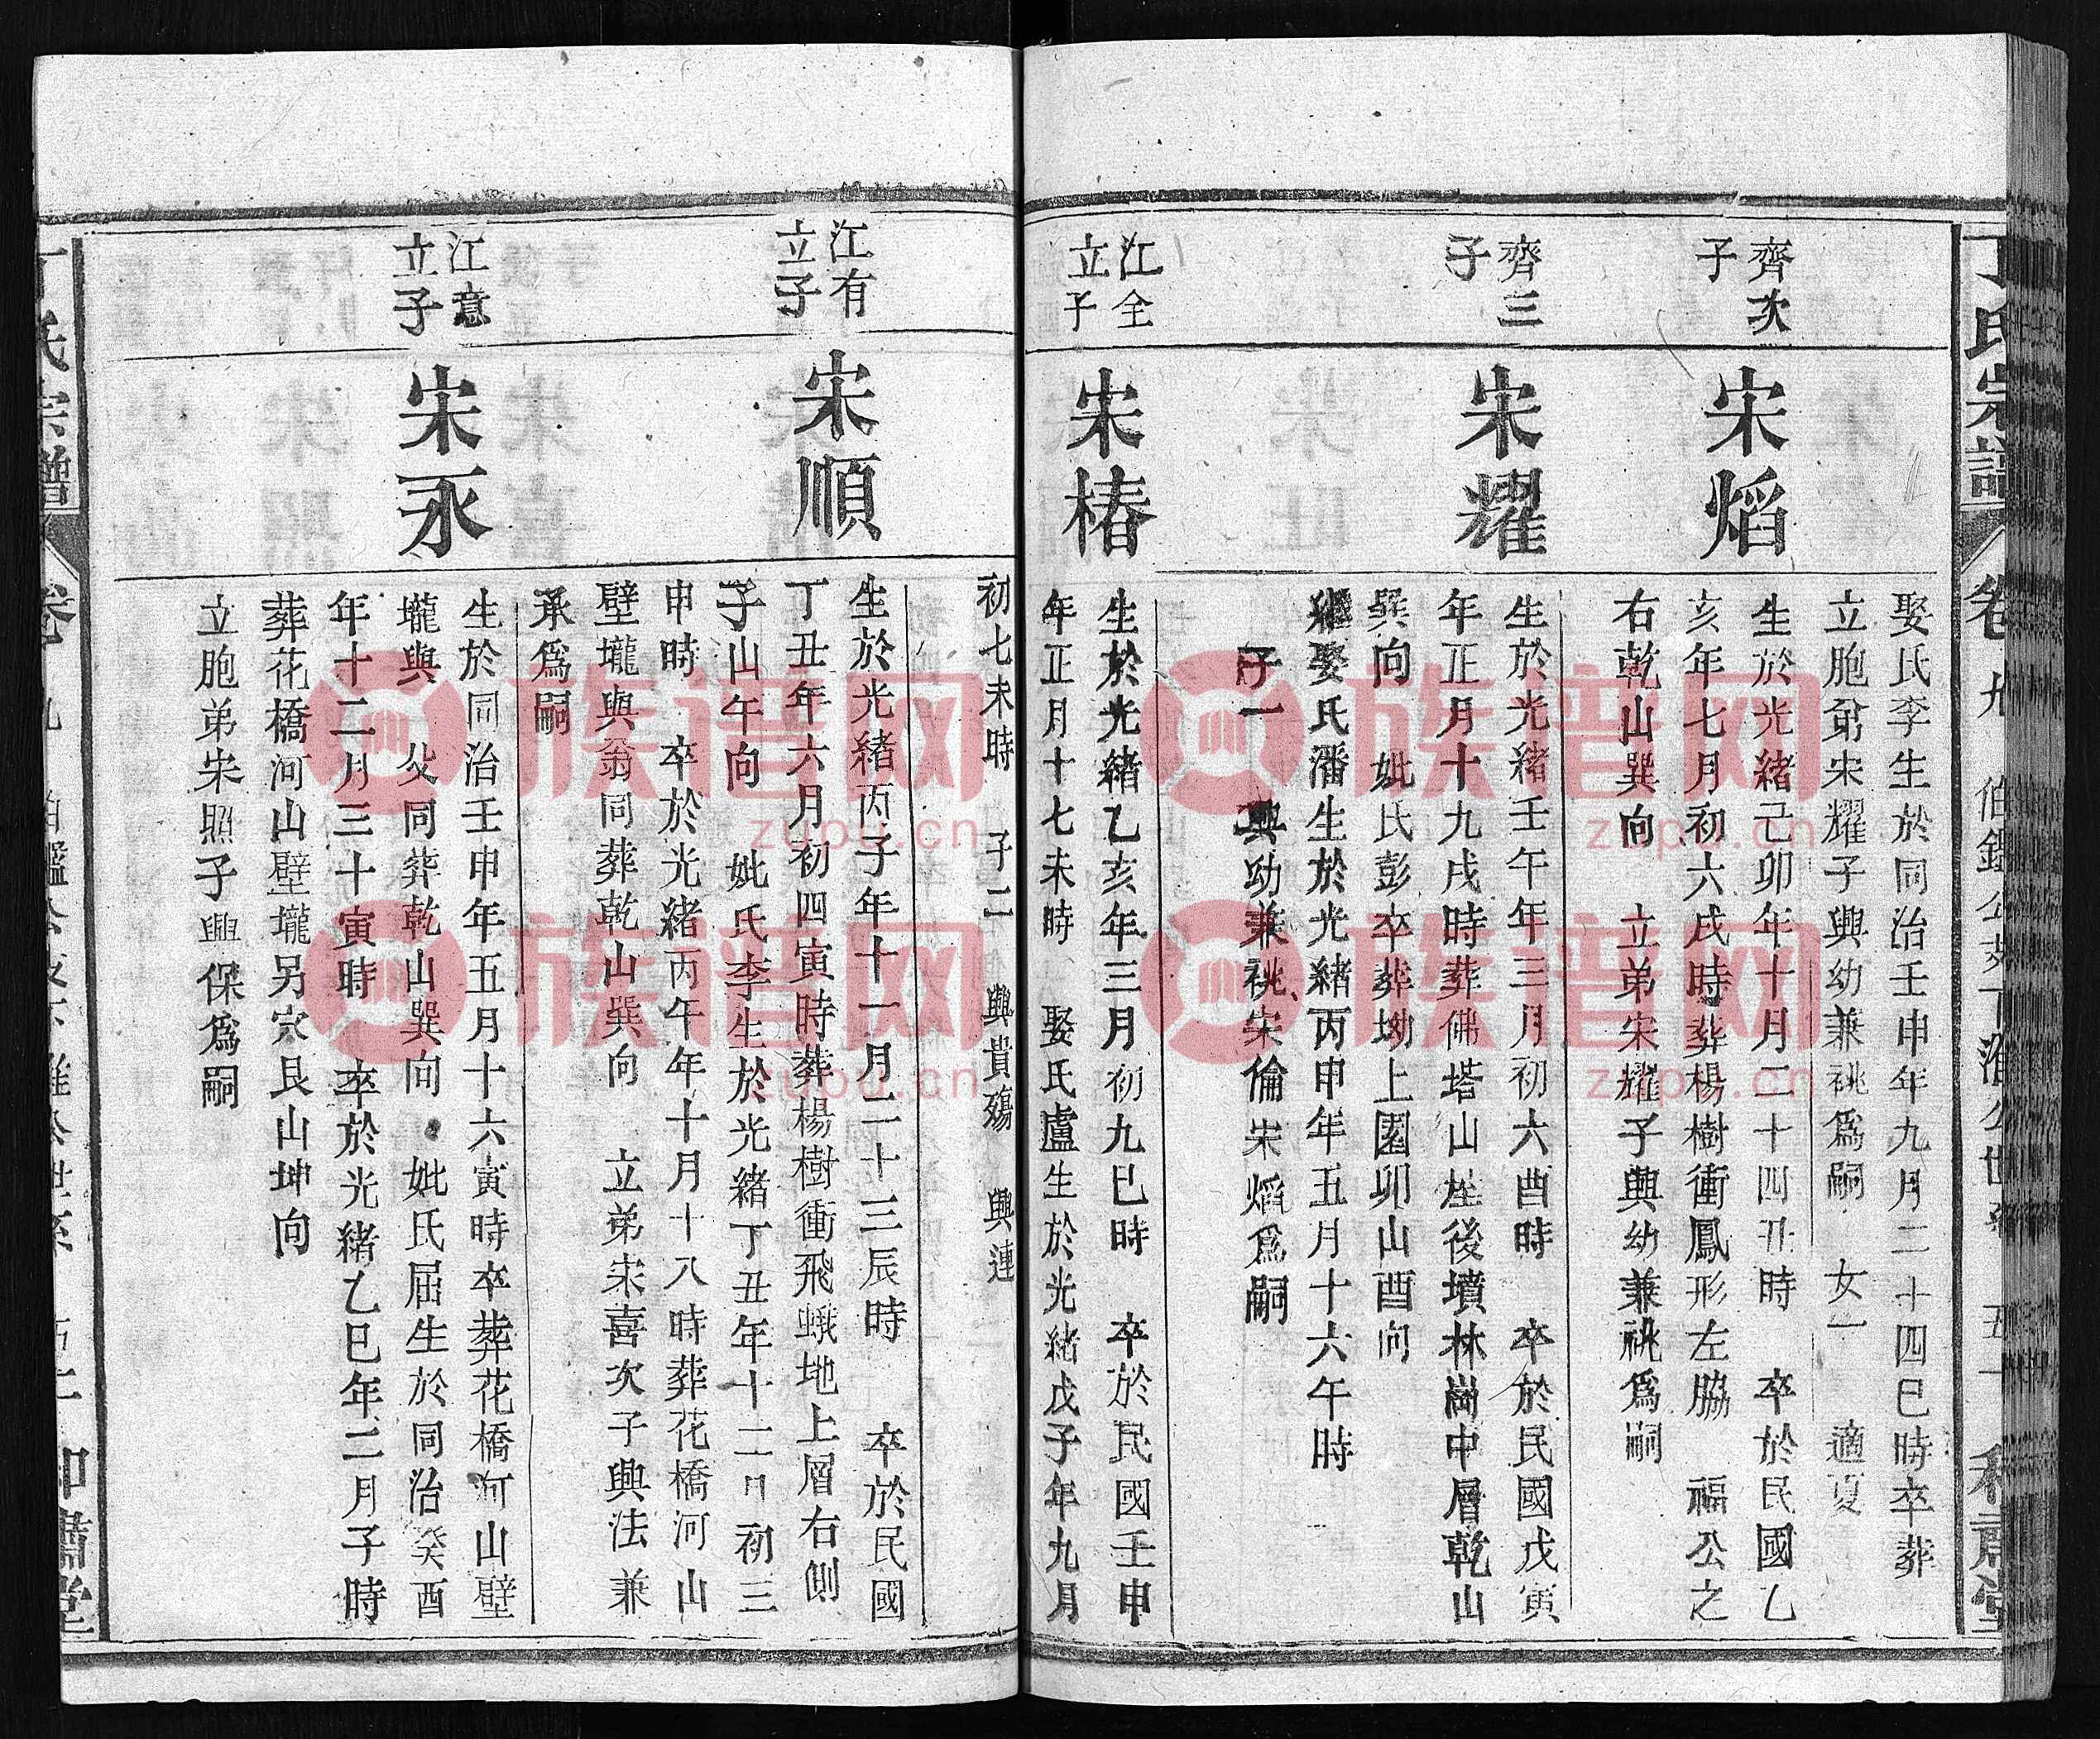 丁氏宗譜
卷九
五十
娶氏李生於同治壬申年九月二十四巳時卒葬
立胞弟宋耀子興幼兼祧爲嗣 女一 適夏
齊次
子
宋熖
生於光緒己卯年十月二十四丑時 卒於民國乙
亥年七月初六戌時葬楊樹衝鳳形左脇 福公之
右乾山巽向 立弟宋耀子興幼兼祧爲嗣
齊三
子
宋耀
生於光緒壬午年三月初六酉時 卒於民國戊寅
年正月十九戌時葬佛塔山坐後墳林崗中層乾山
巽向 妣氏彭卒葬坳上園卯山酉向
繼娶氏潘生於光緒丙申年五月十六午時
子一 興幼兼祧宋倫宋熖爲嗣
江全
立子
宋椿
生於光緒乙亥年三月初九巳時 卒於民國壬申
年正月十七未時 娶氏盧生於光緒戊子年九月
初七未時 子二 興貴殤 興連
江有
立子
宋順
生於光緒丙子年十一月二十三辰時 卒於民國
丁丑年六月初四寅時葬楊樹衝飛蛾地上層右側
子山午向 妣氏李生於光緒丁丑年十二月初三
申時 卒於光緒丙午年十月十八時葬花橋河山
壁壠與翁同葬乾山巽向 立弟宋喜次子興法兼
承爲嗣
江意
立子
宋永
生於同治壬申年五月十六寅時卒葬花橋河山壁
壠與 父同葬乾山巽向 妣氏屈生於同治癸酉
年十二月三十寅時 卒於光緒乙巳年二月子時
葬花橋河山壁壠另穴艮山坤向
立胞弟宋照子興保爲嗣
丁氏宗譜
族谱网
zupu.cn
族谱网
zupu.cn
族谱网
zupu.cn
族谱网
zupu.cn